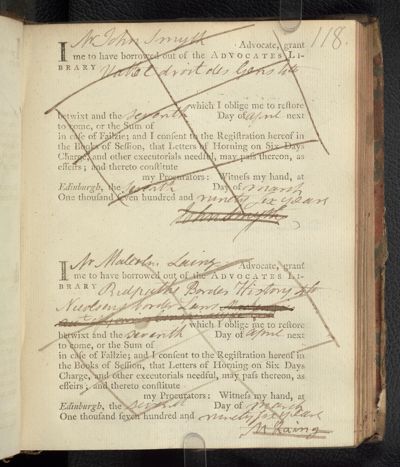 118.
I Mr John Smyth Advocate, grant
me to have borrowed out of the ADVOCATES LI-
BRARY Vattel droit des Gens
which I oblige me to restore
betwixt and the seventh Day of april next
to come, or the Sum of
in case of Failzie; and I consent to the Registration hereof in
the Books of Session, that Letters of Horning on Six Days
Charge, and other executorials needful, may pass thereon, as
effeirs; and thereto constitute
my Procurators: Witness my hand, at
Edinburgh, the seventh Day of march
One thousand seven hundred and ninety six years
John Smyth
I Mr Malcolm Laing Advocate, grant
me to have borrowed out of the ADVOCATES LI-
BRARY Redpaths Border History
Nicolsons Border Laws
which I oblige me to restore
betwixt and the seventh Day of april next
to come, or the Sum of
in case of Failzie; and I consent to the Registration hereof in
the Books of Session, that Letters of Horning on Six Days
Charge, and other executorials needful, may pass thereon, as
effeirs; and thereto constitute
my Procurators: Witness my hand, at
Edinburgh, the seventh Day of march
One thousand seven hundred and ninety six years
M Laing